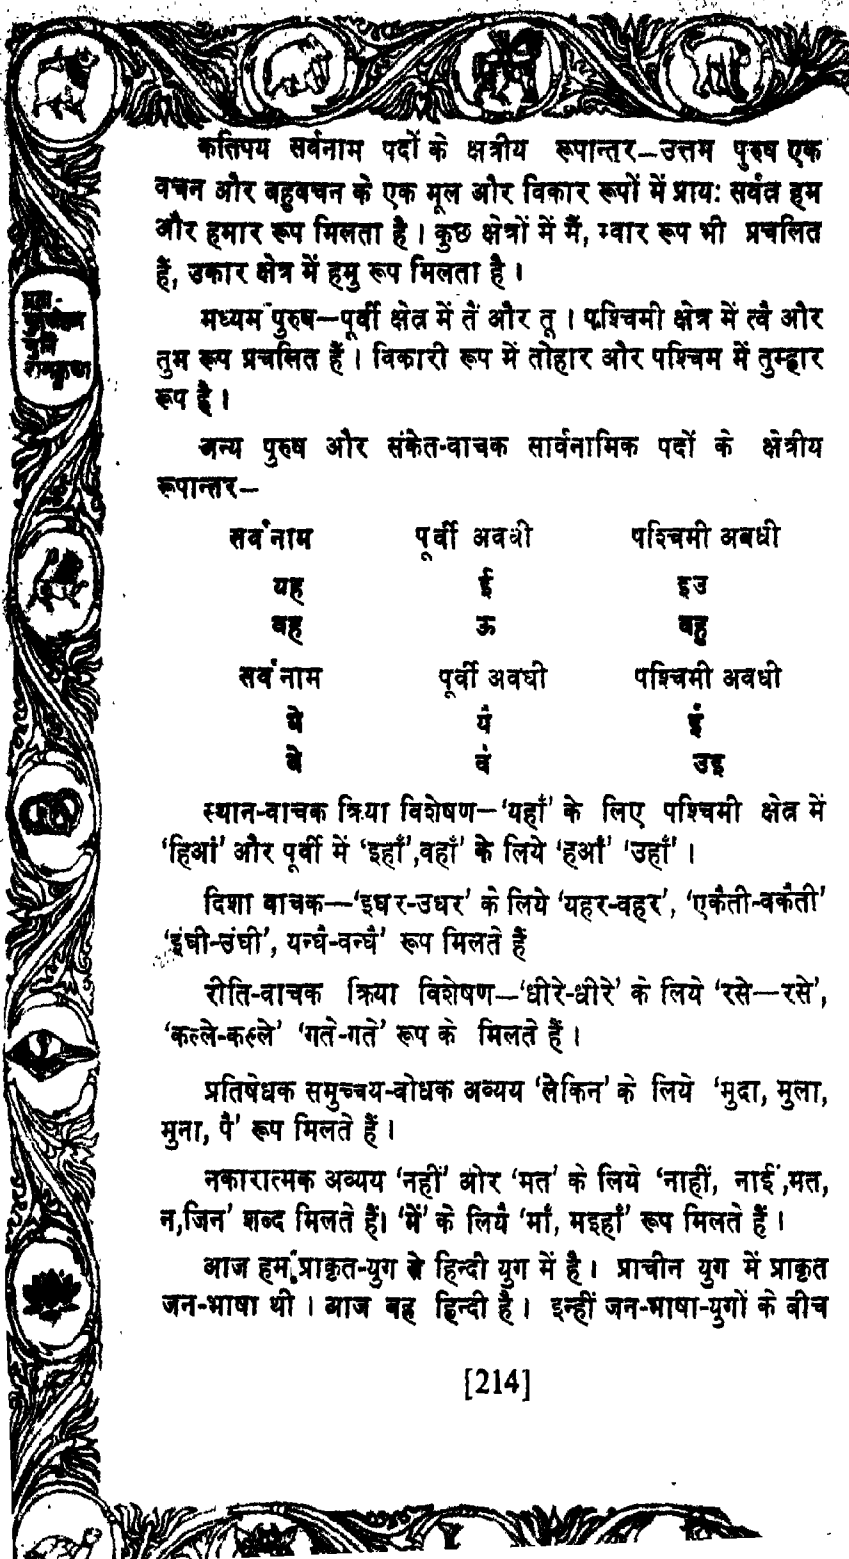 कतिपय सर्वनाम पदों के क्षत्रीय रूपान्तर—उत्तम पुरुष एक
वचन और बहुवचन के एक मूल और विकार रूपों में प्राय: सर्वत्र हम
और हमार रूप मिलता है । कुछ क्षेत्रों में मैं, ग्वार रूप भी प्रचलित
हैं, उकार क्षेत्र में हमु रूप मिलता है ।
मध्यम पुरुष—पूर्वी क्षेत्र में तें और तू । पश्चिमी क्षेत्र में त्वै और
तुम रूप प्रचलित हैं । विकारी रूप में तोहार और पश्चिम में तुम्हार
रूप है ।
अन्य पुरुष और संकेत-वाचक सार्वनामिक पदों के क्षेत्रीय
रूपान्तर—
सर्वनाम पूर्वी अवधी पश्चिमी अवधी
यह ई इउ
वह ऊ वहु
सर्वनाम पूर्वी अवधी पश्चिमी अवधी
ये यं इं
वे वं उइ
स्थान-वाचक क्रिया विशेषण—‘यहाँ’ के लिए पश्चिमी क्षेत्र में
‘हिआं’ और पूर्वी में ‘इहाँ’,वहाँ’ के लिये ‘हआं’ ‘उहाँ’ ।
दिशा वाचक—‘इधर-उधर’ के लिये ‘यहर-वहर’, ‘एकैती-वकैती’
‘इंघी-उंघी’, यन्घै-वन्घै’ रूप मिलते हैं
रीति-वाचक क्रिया विशेषण—‘धीरे-धीरे’ के लिये ‘रसे—रसे’,
‘कल्ले-कल्ले’ ‘गते-गते’ रूप के मिलते हैं ।
प्रतिषेधक समुच्चय-बोधक अव्यय ‘लेकिन’ के लिये ‘मुदा, मुला,
मुना, पै’ रूप मिलते हैं ।
नकारात्मक अव्यय ‘नहीं’ ओर ‘मत’ के लिये ‘नाहीं, नाईं’,मत,
न,जिन’ शब्द मिलते हैं। ‘में’ के लियै ‘माँ, मइहाँ’ रूप मिलते हैं ।
आज हम प्राकृत-युग से हिन्दी युग में है । प्राचीन युग में प्राकृत
जन-भाषा थी । आज वह हिन्दी है । इन्हीं जन-भाषा-युगों के बीच
[214]